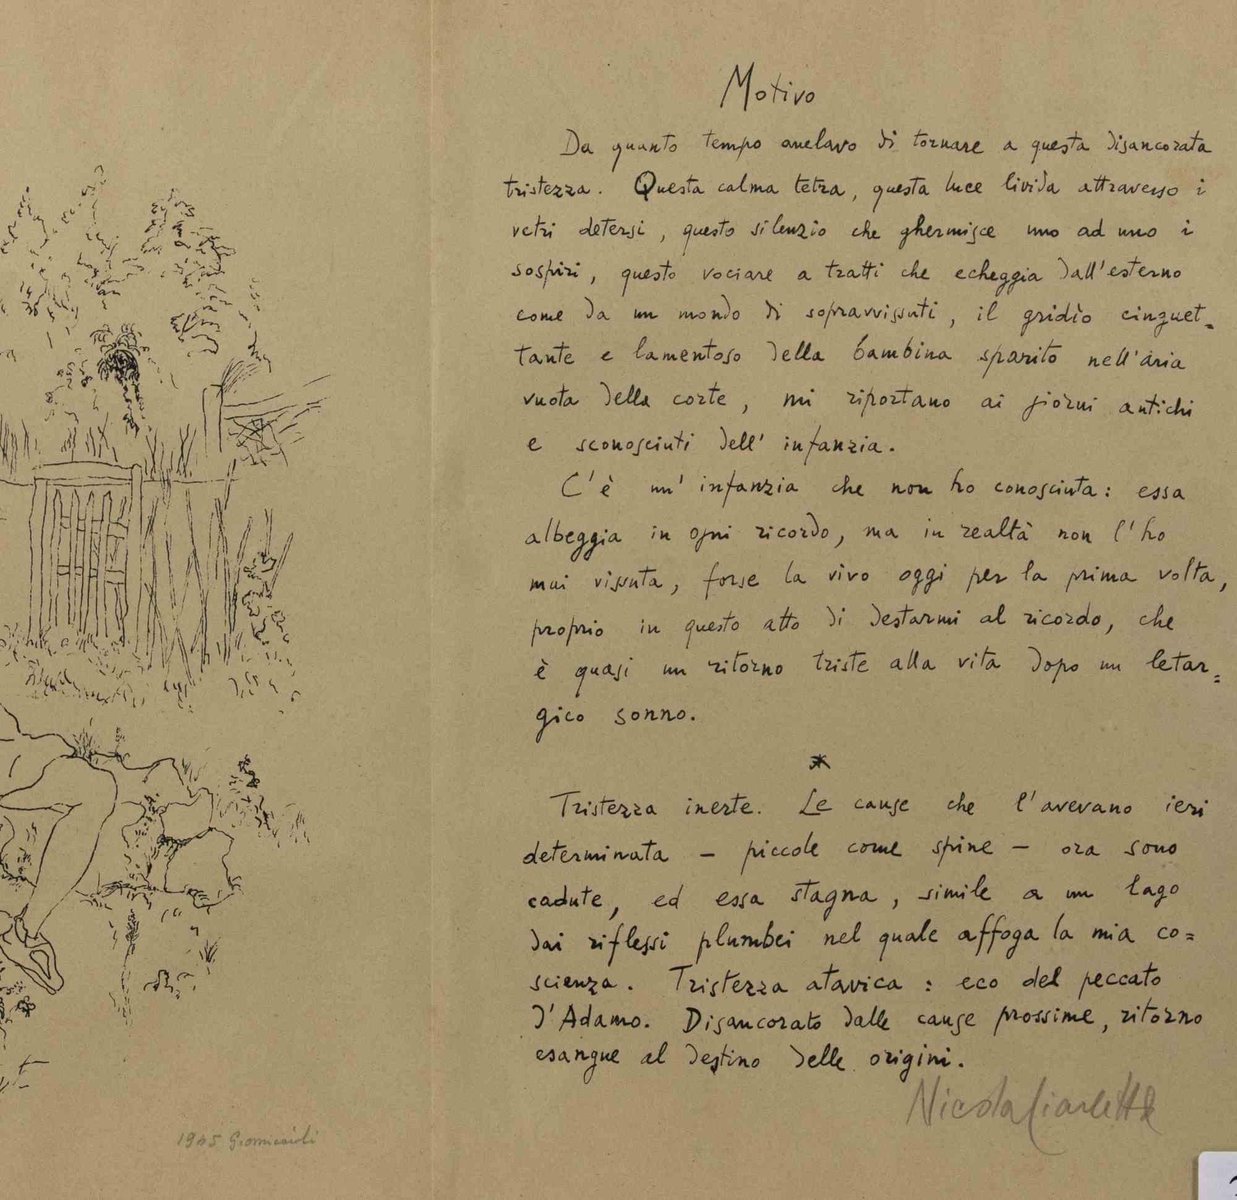 Motivo
Da quanto tempo anelavo di tornare a questa disancorata
tristezza. Questa calma tetra, questa luce livida attraverso i
vetri detersi, questo silenzio che ghermisce uno ad uno i
sospiri, questo vociare a tratti che echeggia dall'esterno
come da un mondo di sopravvissuti, il gridìo cinguet=
tante e lamentoso della bambina sparito nell'aria
vuota della corte, mi riportano ai giorni antichi
e sconosciuti dell'infanzia.
C'è un'infanzia che non ho conosciuta: essa
albeggia in ogni ricordo, ma in realtà non l'ho
mai vissuta, forse la vivo oggi per la prima volta,
proprio in questo atto di destarmi al ricordo, che
è quasi un ritorno triste alla vita dopo un letar=
gico sonno.
*
Tristezza inerte. Le cause che l'avevano ieri
determinata – piccole come spine – ora sono
cadute, ed essa stagna, simile a un lago
dai riflessi plumbei nel quale affoga la mia co=
scienza. Tristezza atavica: eco del peccato
d'Adamo. Disancorato dalle cause prossime, ritorno
esangue al destino delle origini.
Nicola Ciarletta
1945